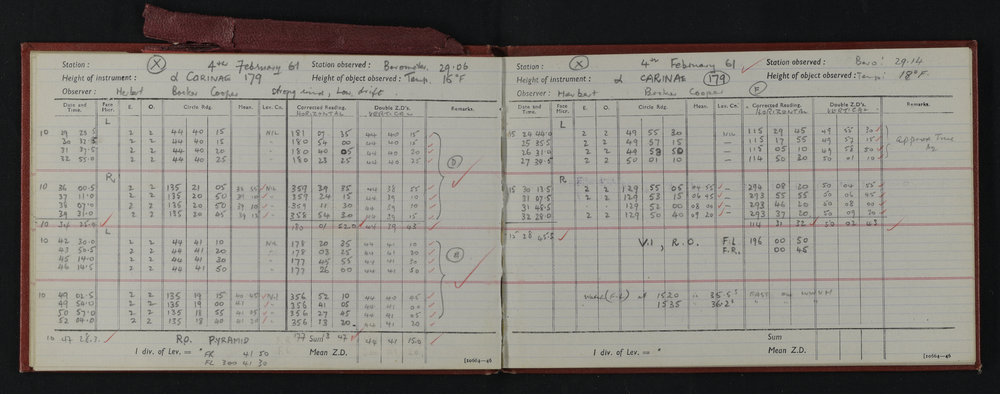 Station : X 4th February 61 Station observed : Barometer. 29.06
Height of instrument : α CARINAE 179 Height of object observed : Temp. 16°F
Observer : Herbert Cooper Strong wind, Low drift.
Date and Time. Face Micr. E. O. Circle Rdg. Mean. Lev. Co. Corrected Reading. HORIZONTAL Double Z.D's. VERTICAL Remarks.
L
2 2 44 40 15 NIL 181 07 35 44 40 15
2 2 44 40 15 180 54 00 44 40 15
31 37.5 2 2 44 40 20 180 40 05 44 40 20
32 55.0 2 2 44 40 25 180 23 25 44 40 25
R
10 36 00.5 2 2 135 21 05 NIL 359 39 35 44 38 55
37 11.0 2 2 135 20 50 359 24 15 44 39 10
38 07.0 2 2 135 20 50 359 11 30 44 39 10
39 31.0 2 2 135 20 45 358 54 30 44 39 15
180 01 52.0 44 39 43
L
10 42 30.0 2 2 44 41 10 178 20 25 44 41 10
43 50.5 2 2 44 41 20 178 03 25 44 41 20
45 14.0 2 2 44 41 30 177 45 55 44 41 30
46 14.5 2 2 44 41 50 177 26 00 44 41 50
10 49 02.5 2 2 135 19 15 356 52 10 44 40 45
49 54.0 2 2 135 19 00 356 41 05 44 41 00
50 57.0 2 2 135 18 55 356 27 45 44 41 05
52 04.0 2 2 135 18 40 356 13 20 44 41 20
10 47 28.3 R.O. PYRAMID Sum 44 41 15.0
1 div. of Lev. = " FR 41 50 Mean Z.D.
FL 300 41 30 [20664—46
Station : X 4th February 61 Station observed : Baro: 29.14
Height of instrument : α CARINAE 179 Height of object observed : Temp: 18°F.
Observer : Herbert Cooper E
Date and Time. Face Micr. E. O. Circle Rdg. Mean. Lev. Co. Corrected Reading. HORIZONTAL Double Z.D's. VERTICAL Remarks.
L
15 24 44.0 2 2 49 55 30 NIL 115 29 45 49 55 30
25 35.5 2 2 49 57 15 115 17 55 49 57 15 Approx True
26 31.0 2 2 49 58 50 115 05 10 49 58 50
27 39.5 2 2 50 01 10 114 50 20 50 01 10
R
15 30 13.5 2 2 129 55 05 04 55 294 08 20 50 04 55
31 07.5 2 2 129 53 15 06 45 293 55 55 50 06 45
31 48.5 129 52 00 08 00 293 46 20 50 08 00
32 28.0 2 2 129 50 40 09 20 293 37 20 50 09 30
15 28 45.5 114 31 32 50 02 43
V.1, R.O. F.L 196 00 50
F.R. 00 45
WWVH (F-L) at 1520 is 35.5s FAST on WWVH
1535 36.2s
Sum
1 div. of Lev. = " Mean Z.D.
[20664—46